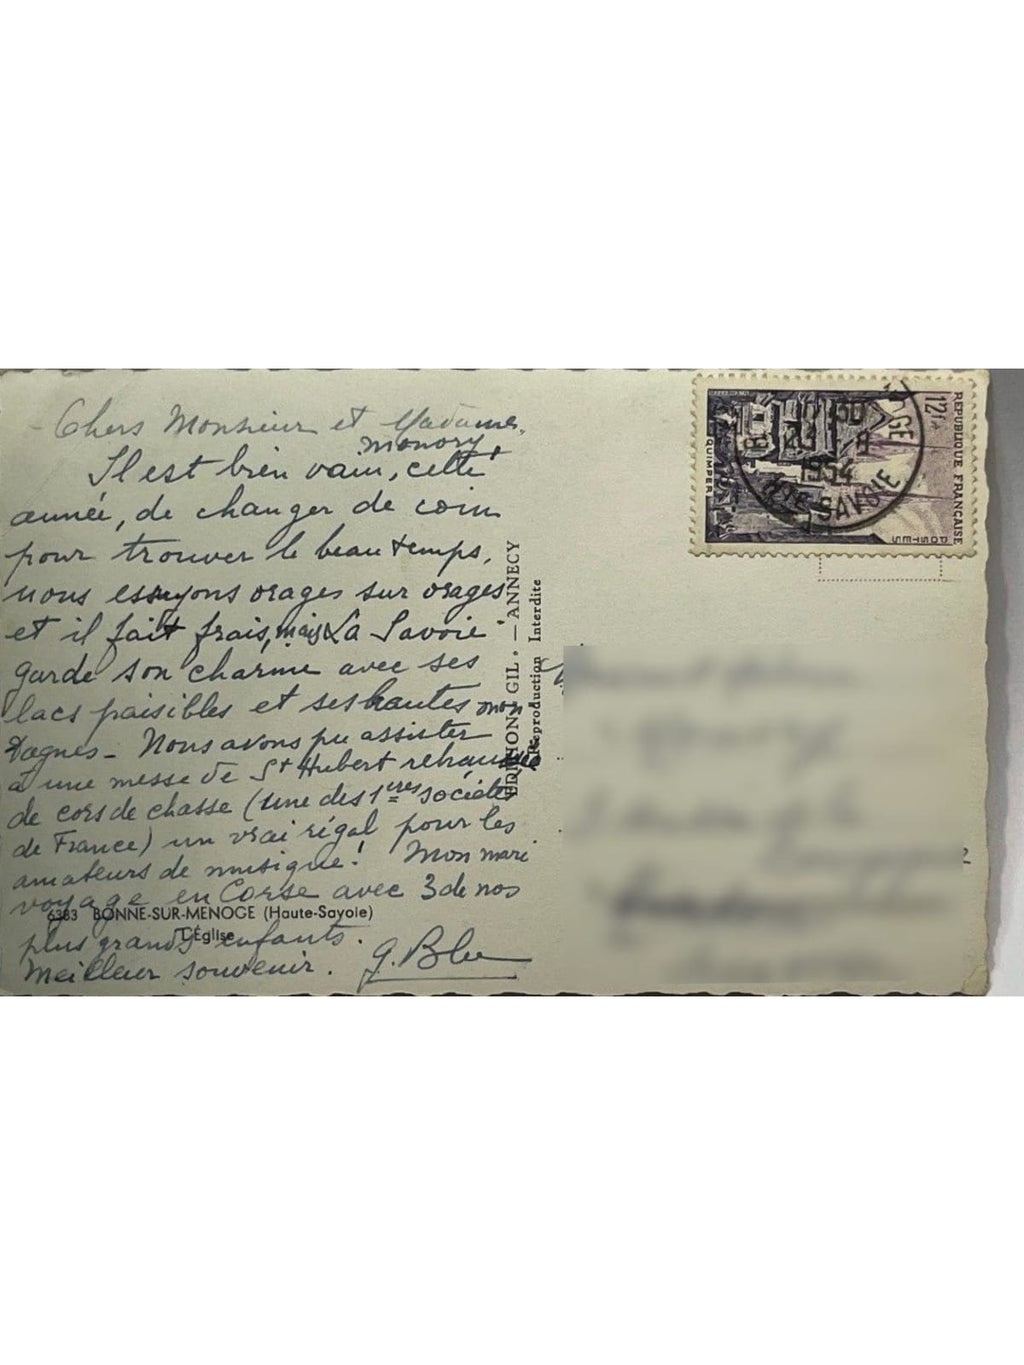 Chers Monsieur et Madame
Monory,
Il est bien vain, cette
année, de changer de coin
pour trouver le beau temps,
nous essuyons orages sur orages
et il fait frais, mais La Savoie
garde son charme avec ses
lacs paisibles et ses hautes mon
tagnes - Nous avons pu assister
à une messe de St Hubert rehaussée
de cors de chasse (une des 1ères sociétés
de France) un vrai régal pour les
amateurs de musique! Mon mari
voyage en Corse avec 3 de nos
plus grands enfants.
Meilleur souvenir. G. Blu
6383 BONNE-SUR-MENOGE (Haute-Savoie)
L'Église
EDITION GIL. — ANNECY
Reproduction Interdite
REPUBLIQUE FRANÇAISE
12f
POSTES
QUIMPER
1954
HTE SAVOIE